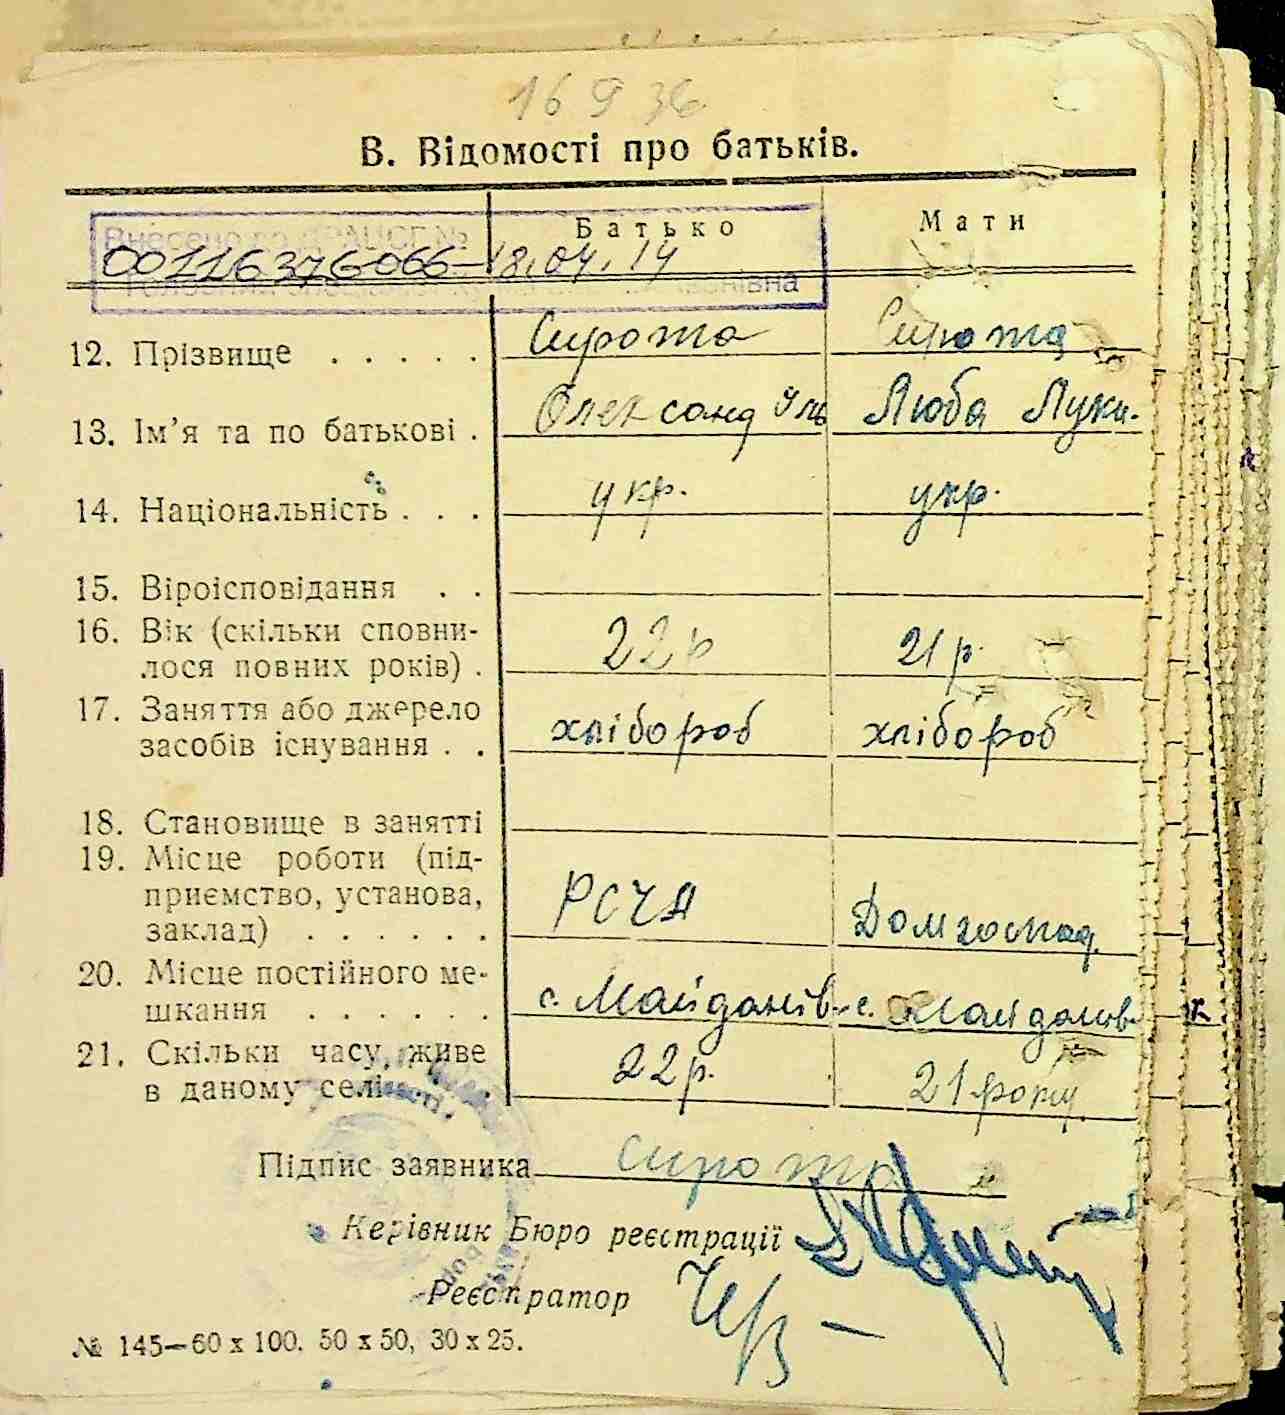 16 9 36
В. Відомості про батьків.
Батько Мати
Внесено до ДРАЦСГ №
00116376066-18.04.14
12. Прізвище . . . . . Сирота Сирота
13. Ім'я та по батькові . Олександ Люба Луки.
14. Національність . . . укр. укр.
15. Віроісповідання . .
16. Вік (скільки сповни-
лося повних років) . 22 р 21 р.
17. Заняття або джерело
засобів існування . . хлібороб хлібороб
18. Становище в занятті
19. Місце роботи (під-
приємство, установа,
заклад) . . . . . . РСЧА Домгоспод.
20. Місце постійного ме-
шкання . . . . . . с. Майданів- с. Майданів-
21. Скільки часу живе
в даному селі 22 р. 21 року
Підпис заявника Сирота
Керівник Бюро реєстрації
Реєстратор
№ 145—60 x 100. 50 x 50, 30 x 25.